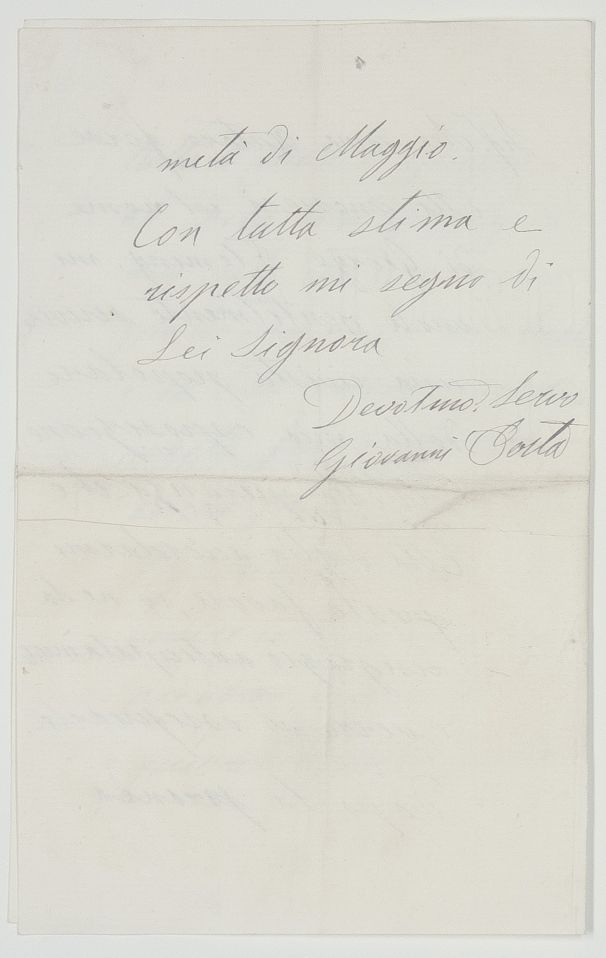 metà di Maggio.
Con tutta stima e
rispetto mi segno di
Lei Signora
Devotmo. Servo
Giovanni Costa